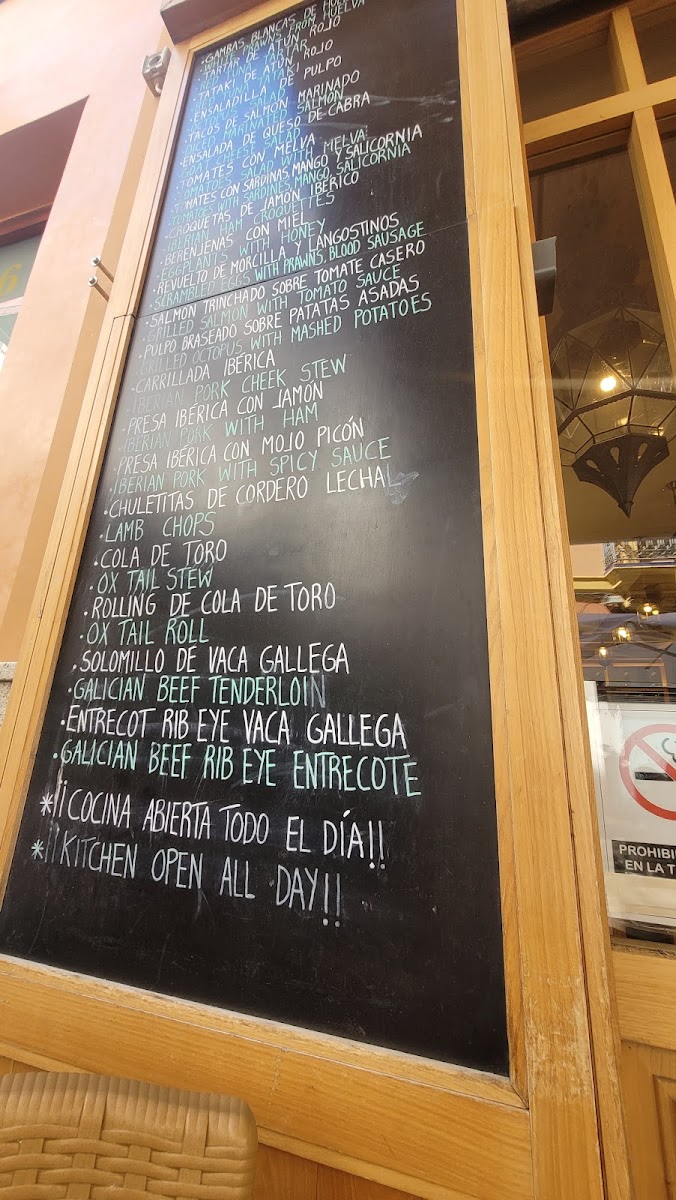 ·GAMBAS BLANCAS DE HUELVA
PRAWNS FROM HUELVA
TARTAR DE ATÚN ROJO
TARTAR
TATAKI DE ATÚN ROJO
TATAKI
ENSALADILLA DE PULPO
·TACOS DE SALMÓN MARINADO
DICED MARINATED SALMON
·ENSALADA DE QUESO DE CABRA
CHEESE SALAD
·TOMATES CON MELVA
TOMATOE SALAD WITH MELVA
·TOMATES CON SARDINAS, MANGO Y SALICORNIA
TOMATOES WITH SARDINES, MANGO, SALICORNIA
·CROQUETAS DE JAMÓN IBÉRICO
·IBERIAN HAM CROQUETTES
·BERENJENAS CON MIEL
·EGGPLANTS WITH HONEY
·REVUELTO DE MORCILLA Y LANGOSTINOS
·SCRAMBLED EGGS WITH PRAWNS, BLOOD SAUSAGE
·SALMON TRINCHADO SOBRE TOMATE CASERO
·GRILLED SALMON WITH TOMATO SAUCE
·PULPO BRASEADO SOBRE PATATAS ASADAS
·GRILLED OCTOPUS WITH MASHED POTATOES
·CARRILLADA IBÉRICA
·IBERIAN PORK CHEEK STEW
·PRESA IBÉRICA CON JAMÓN
·IBERIAN PORK WITH HAM
·PRESA IBÉRICA CON MOJO PICÓN
·IBERIAN PORK WITH SPICY SAUCE
·CHULETITAS DE CORDERO LECHAL
·LAMB CHOPS
·COLA DE TORO
·OX TAIL STEW
·ROLLING DE COLA DE TORO
·OX TAIL ROLL
·SOLOMILLO DE VACA GALLEGA
·GALICIAN BEEF TENDERLOIN
·ENTRECOT RIB EYE VACA GALLEGA
·GALICIAN BEEF RIB EYE ENTRECOTE
*¡¡COCINA ABIERTA TODO EL DÍA!!
*¡¡KITCHEN OPEN ALL DAY!!
6
PROHIBI
EN LA T